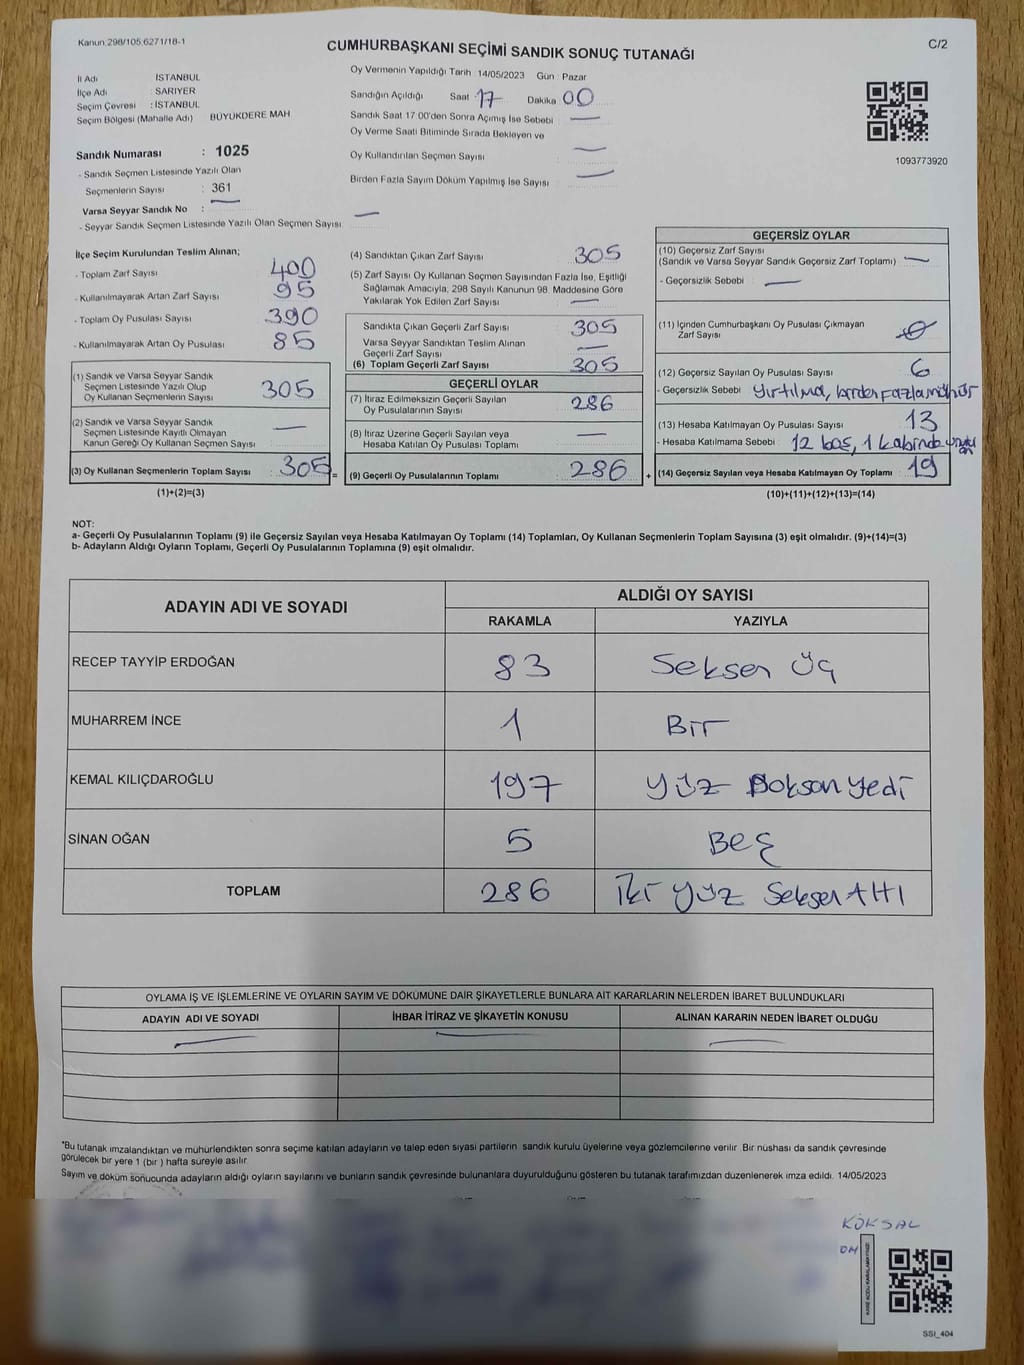 Kanun 298/105 6271/18-1
CUMHURBAŞKANI SEÇİMİ SANDIK SONUÇ TUTANAĞI
C/2
İl Adı İSTANBUL
İlçe Adı : SARIYER
Seçim Çevresi : İSTANBUL
Seçim Bölgesi (Mahalle Adı) BÜYÜKDERE MAH
Sandık Numarası : 1025
- Sandık Seçmen Listesinde Yazılı Olan
Seçmenlerin Sayısı : 361
Varsa Seyyar Sandık No : —
- Seyyar Sandık Seçmen Listesinde Yazılı Olan Seçmen Sayısı —
Oy Vermenin Yapıldığı Tarih 14/05/2023 Gün Pazar
Sandığın Açıldığı Saat 17 Dakika 00
Sandık Saat 17 00'den Sonra Açımış İse Sebebi —
Oy Verme Saati Bitiminde Sırada Bekleyen ve
Oy Kullandırılan Seçmen Sayısı —
Birden Fazla Sayım Döküm Yapılmış İse Sayısı —
1093773920
İlçe Seçim Kurulundan Teslim Alınan;
- Toplam Zarf Sayısı 400
- Kullanılmayarak Artan Zarf Sayısı 95
- Toplam Oy Pusulası Sayısı 390
- Kullanılmayarak Artan Oy Pusulası 85
(1) Sandık ve Varsa Seyyar Sandık
Seçmen Listesinde Yazılı Olup
Oy Kullanan Seçmenlerin Sayısı 305
(2) Sandık ve Varsa Seyyar Sandık
Seçmen Listesinde Kayıtlı Olmayan
Kanun Gereği Oy Kullanan Seçmen Sayısı —
(3) Oy Kullanan Seçmenlerin Toplam Sayısı 305 =
(1)+(2)=(3)
(4) Sandıktan Çıkan Zarf Sayısı 305
(5) Zarf Sayısı Oy Kullanan Seçmen Sayısından Fazla İse, Eşitliği
Sağlamak Amacıyla, 298 Sayılı Kanunun 98. Maddesine Göre
Yakılarak Yok Edilen Zarf Sayısı —
Sandıkta Çıkan Geçerli Zarf Sayısı 305
Varsa Seyyar Sandıktan Teslim Alınan
Geçerli Zarf Sayısı —
(6) Toplam Geçerli Zarf Sayısı 305
GEÇERLİ OYLAR
(7) İtiraz Edilmeksizin Geçerli Sayılan
Oy Pusulalarının Sayısı 286
(8) İtiraz Üzerine Geçerli Sayılan veya
Hesaba Katılan Oy Pusulası Toplamı —
(9) Geçerli Oy Pusulalarının Toplamı 286 +
GEÇERSİZ OYLAR
(10) Geçersiz Zarf Sayısı
(Sandık ve Varsa Seyyar Sandık Geçersiz Zarf Toplamı) —
- Geçersizlik Sebebi —
(11) İçinden Cumhurbaşkanı Oy Pusulası Çıkmayan
Zarf Sayısı 0
(12) Geçersiz Sayılan Oy Pusulası Sayısı 6
- Geçersizlik Sebebi Yırtılma, birden fazla mühür
(13) Hesaba Katılmayan Oy Pusulası Sayısı 13
- Hesaba Katılmama Sebebi 12 boş, 1 kabinde
(14) Geçersiz Sayılan veya Hesaba Katılmayan Oy Toplamı 19
(10)+(11)+(12)+(13)=(14)
NOT:
a- Geçerli Oy Pusulalarının Toplamı (9) ile Geçersiz Sayılan veya Hesaba Katılmayan Oy Toplamı (14) Toplamları, Oy Kullanan Seçmenlerin Toplam Sayısına (3) eşit olmalıdır. (9)+(14)=(3)
b- Adayların Aldığı Oyların Toplamı, Geçerli Oy Pusulalarının Toplamına (9) eşit olmalıdır.
ADAYIN ADI VE SOYADI
ALDIĞI OY SAYISI
RAKAMLA YAZIYLA
RECEP TAYYİP ERDOĞAN 83 Seksen Üç
MUHARREM İNCE 1 Bir
KEMAL KILIÇDAROĞLU 197 Yüz Doksan Yedi
SİNAN OĞAN 5 Beş
TOPLAM 286 İki Yüz Seksen Altı
OYLAMA İŞ VE İŞLEMLERİNE VE OYLARIN SAYIM VE DÖKÜMÜNE DAİR ŞİKAYETLERLE BUNLARA AİT KARARLARIN NELERDEN İBARET BULUNDUKLARI
ADAYIN ADI VE SOYADI İHBAR İTİRAZ VE ŞİKAYETİN KONUSU ALINAN KARARIN NEDEN İBARET OLDUĞU
— — —
*Bu tutanak imzalandıktan ve mühürlendikten sonra seçime katılan adayların ve talep eden siyasi partilerin sandık kurulu üyelerine veya gözlemcilerine verilir. Bir nüshası da sandık çevresinde
görülecek bir yere 1 (bir ) hafta süreyle asılır.
Sayım ve döküm sonucunda adayların aldığı oyların sayılarını ve bunların sandık çevresinde bulunanlara duyurulduğunu gösteren bu tutanak tarafımızdan düzenlenerek imza edildi. 14/05/2023
KÖKSAL
KARE KODU KARALAMAYINIZ!
SSI_404